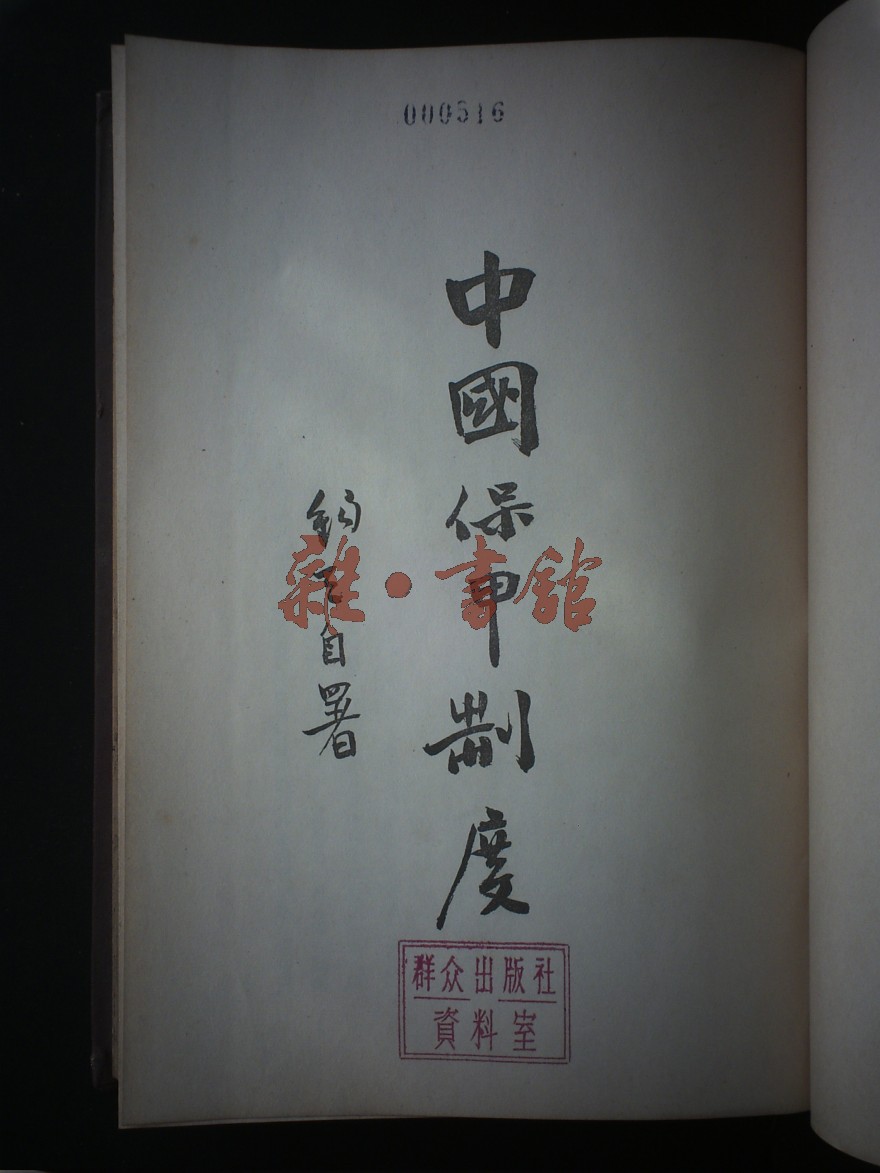 000516
中國保甲制度
鈞天自署
雜·書館
群众出版社
資料室